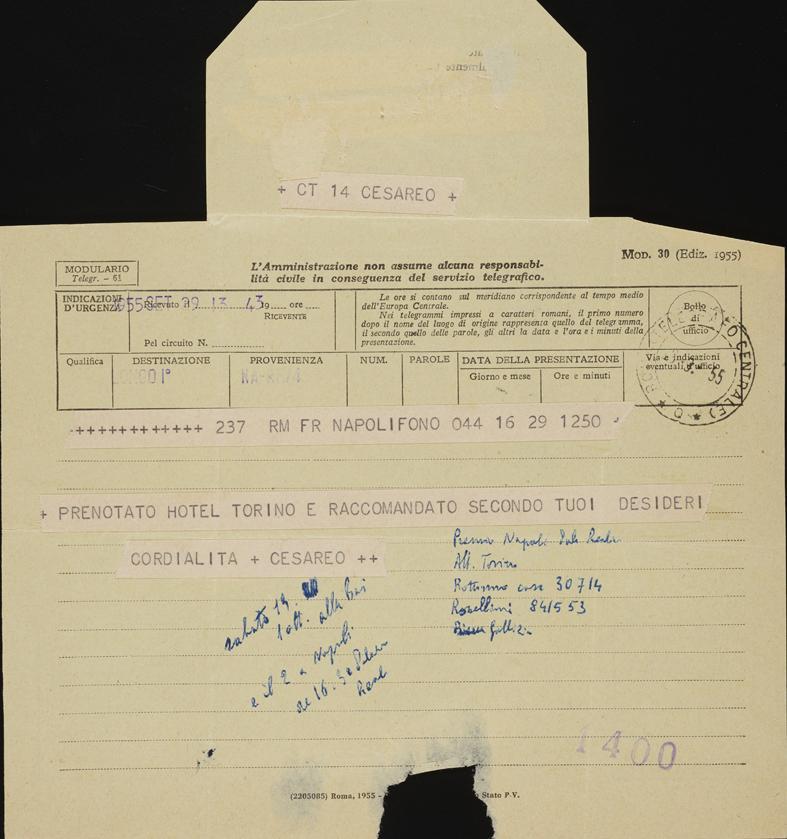 + CT 14 CESAREO +
MODULARIO
Telegr. - 61
L'Amministrazione non assume alcuna responsabi-
lità civile in conseguenza del servizio telegrafico.
Mod. 30 (Ediz. 1955)
INDICAZIONI
D'URGENZA
Ricevuto il 19 ore
RICEVENTE
1955 SET 29 13 43
Pel circuito N.
Le ore si contano sul meridiano corrispondente al tempo medio
dell'Europa Centrale.
Nei telegrammi impressi a caratteri romani, il primo numero
dopo il nome del luogo di origine rappresenta quello del telegramma,
il secondo quello delle parole, gli altri la data e l'ora e i minuti della
presentazione.
Bollo
di
ufficio
Qualifica
DESTINAZIONE
PROVENIENZA
NUM.
PAROLE
DATA DELLA PRESENTAZIONE
Giorno e mese
Ore e minuti
Via e indicazioni
eventuali d'ufficio
CENTRALE
55
-++++++++++++ 237 RM FR NAPOLIFONO 044 16 29 1250 +
+ PRENOTATO HOTEL TORINO E RACCOMANDATO SECONDO TUOI DESIDERI
CORDIALITA + CESAREO ++
Napoli
Alb. Torino
30714
Rosellini 841553
sabato
1 ott. alla
e il 2 a Napoli
ore 16.30
Reale
1400
(2205085) Roma, 1955 -
Stato P.V.